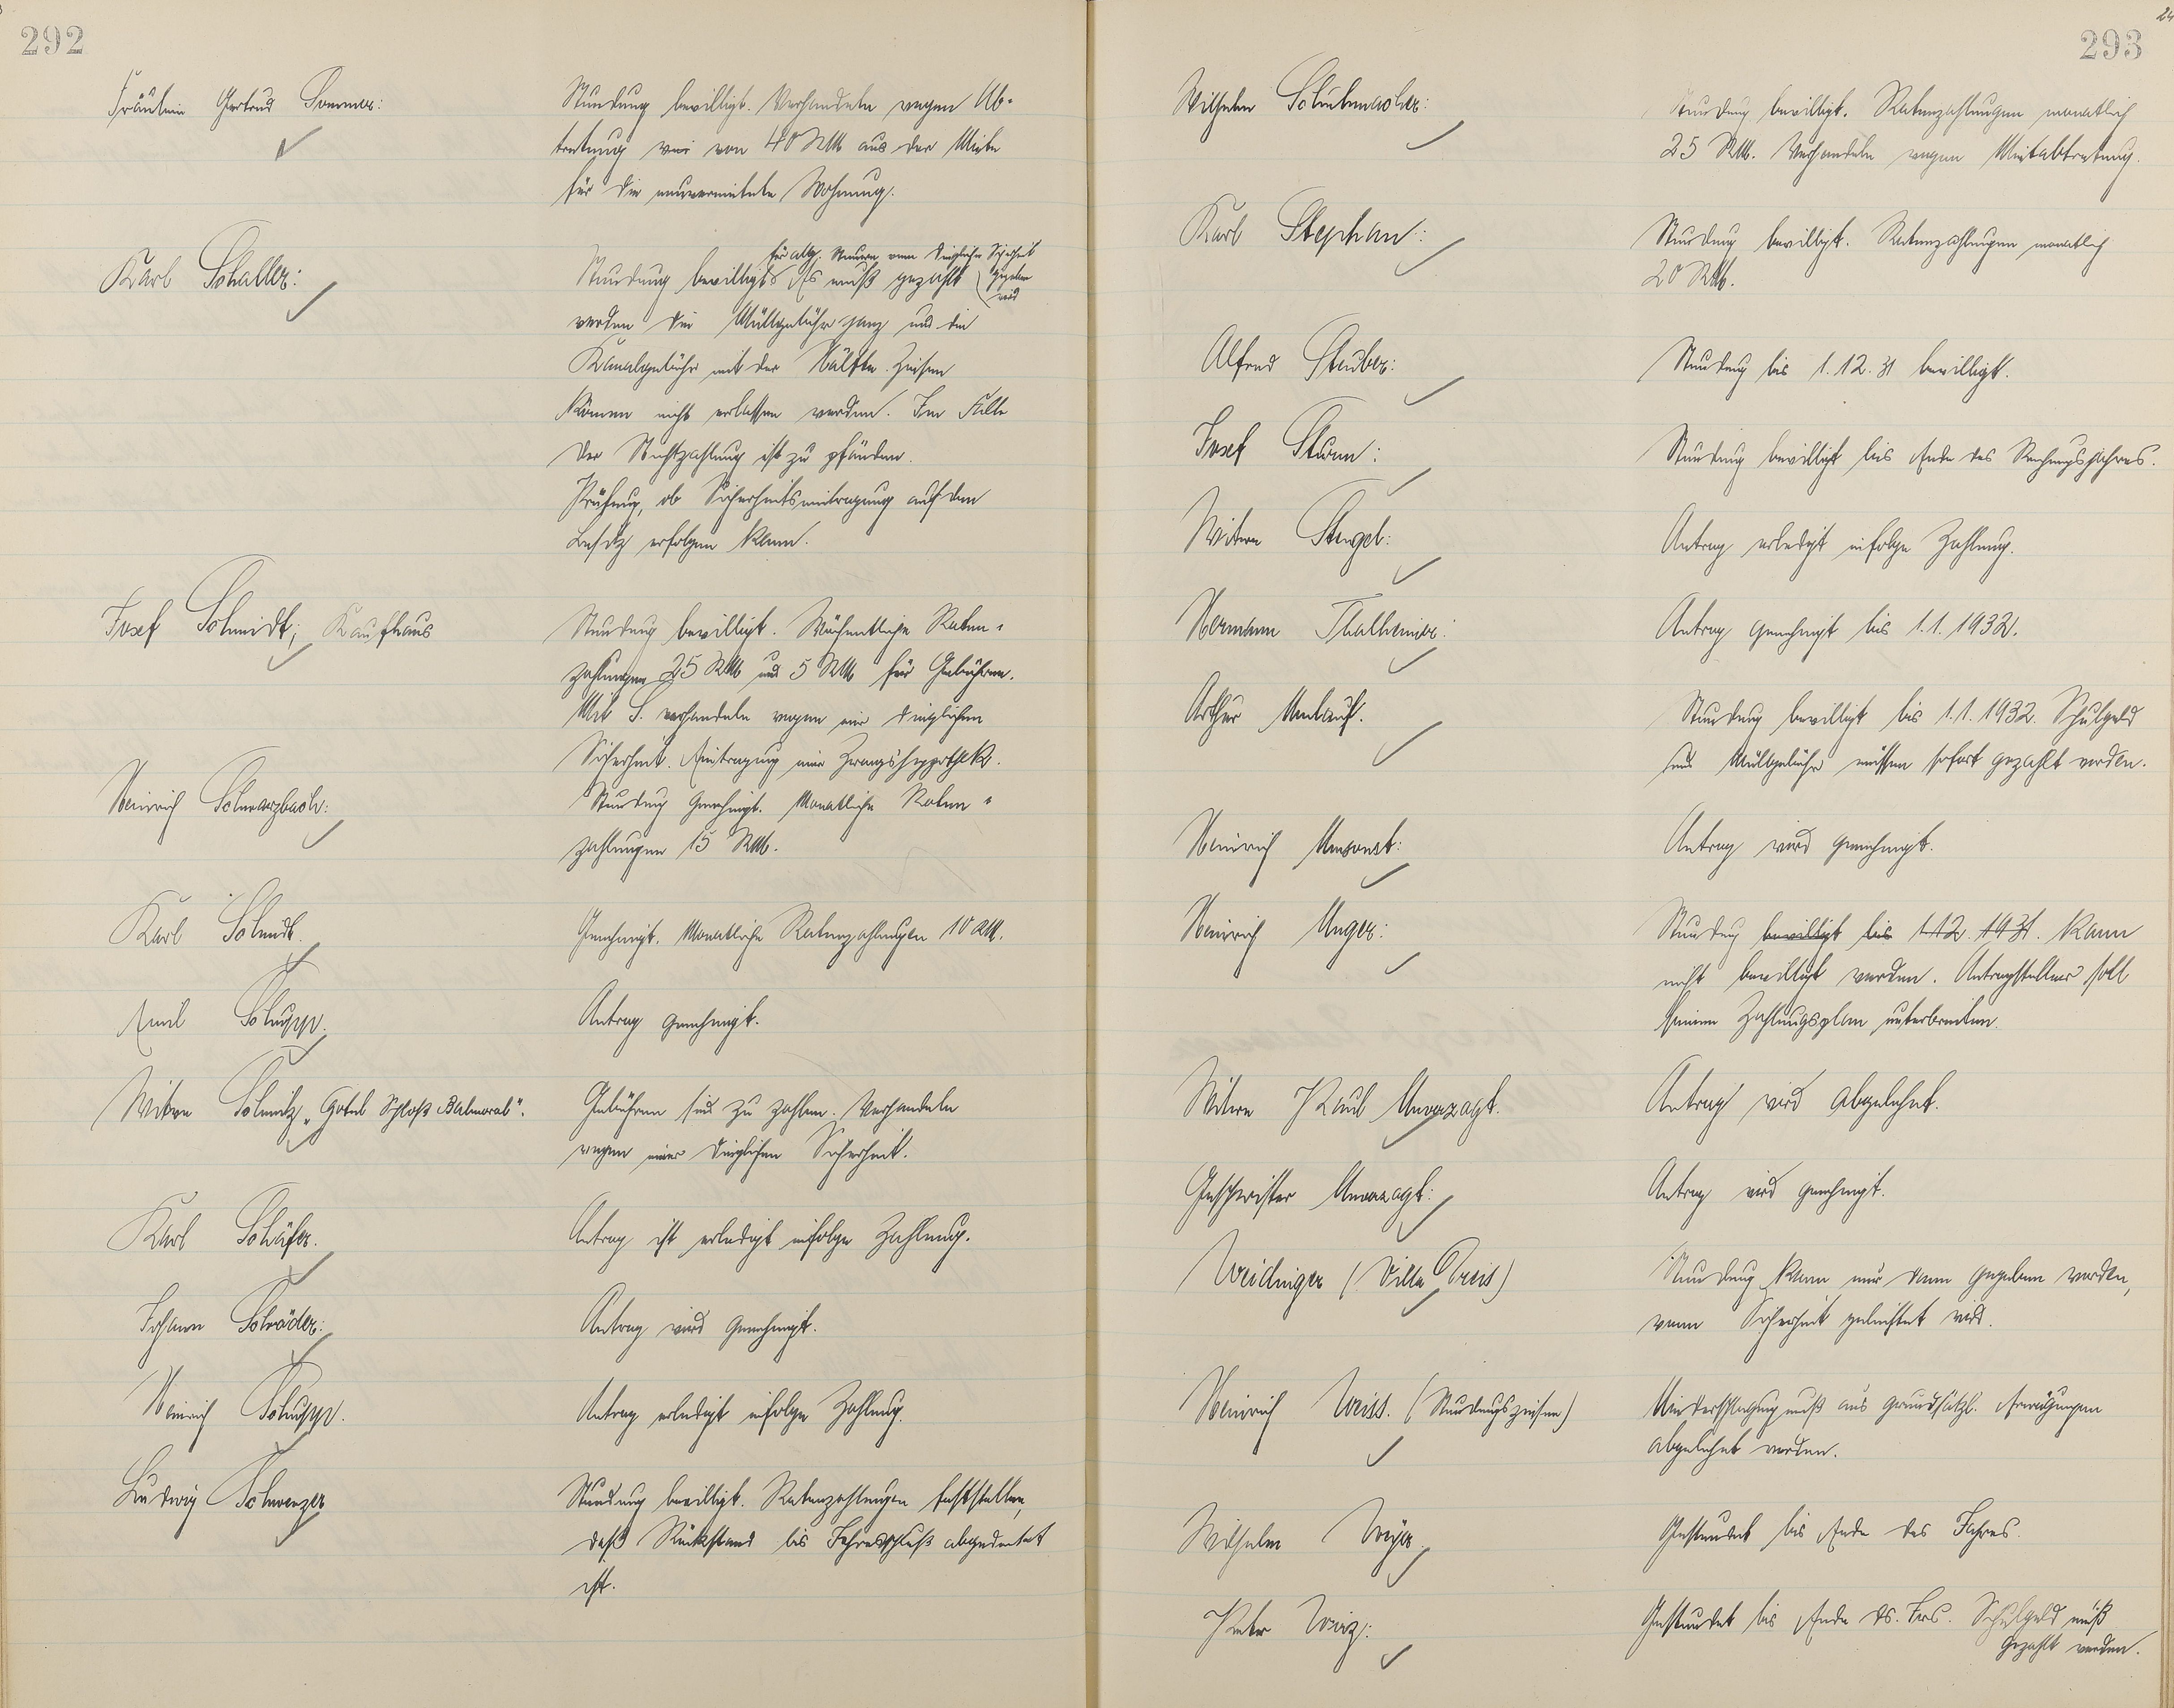 292
Fräulein Gertrud Sommer:
Stundung bewilligt. Verhandeln wegen Ab-
tretung von 40 RM aus der Miete
für die neuvermietete Wohnung.
Karl Schaller:
für allg. Steuern wenn dingliche Sicherheit
Stundung bewilligt. Es muß gezahlt gegeben
wird
werden die Müllgebühr ganz und die
Kanalgebühr mit der Hälfte. Zinsen
können nicht erlassen werden. Im Falle
der Nichtzahlung ist zu pfänden.
Prüfung, ob Sicherheitseintragung auf den
Besitz erfolgen kann.
Josef Schmidt, Kaufhaus
Stundung bewilligt. Wöchentliche Raten-
zahlungen 25 RM und 5 RM für Gebühren.
Mit S. verhandeln wegen einer dinglichen
Sicherheit. Eintragung einer Zwangshypothek.
Heinrich Schwarzbach:
Stundung genehmigt. Monatliche Raten-
zahlungen 15 RM.
Karl Schmidt.
Genehmigt. Monatliche Ratenzahlungen 10 RM.
Emil Schupp.
Antrag genehmigt.
Witwe Schmitz „Hotel Schloß Balmoral".
Gebühren sind zu zahlen. Verhandeln
wegen einer dinglichen Sicherheit.
Karl Schäfer.
Antrag ist erledigt infolge Zahlung.
Johann Schröder:
Antrag wird genehmigt.
Heinrich Schupp.
Antrag erledigt infolge Zahlung.
Ludwig Schwenzer
Stundung bewilligt. Ratenzahlungen feststellen,
daß Rückstand bis Jahresschluß abgedeckt
ist.
293
Wilhelm Schuhmacher:
Stundung bewilligt. Ratenzahlungen monatlich
25 RM. Verhandeln wegen Mietabtretung.
Karl Stephan:
Stundung bewilligt. Ratenzahlungen monatlich
20 RM.
Alfred Stuber:
Stundung bis 1.12.31 bewilligt.
Josef Sturm:
Stundung bewilligt bis Ende des Rechnungsjahres.
Witwe Stengel:
Antrag erledigt infolge Zahlung.
Hermann Thalheimer:
Antrag genehmigt bis 1.1.1932.
Arthur Umlauf.
Stundung bewilligt bis 1.1.1932. Schulgeld
und Müllgebühr müssen sofort gezahlt werden.
Heinrich Umsonst:
Antrag wird genehmigt.
Heinrich Unger:
Stundung bewilligt bis 1.12.1931. kann
nicht bewilligt werden. Antragsteller soll
seinen Zahlungsplan unterbreiten.
Witwe Paul Unverzagt.
Antrag wird abgelehnt.
Geschwister Unverzagt:
Antrag wird genehmigt.
Weidinger (Villa Preis)
Stundung kann nur dann gegeben werden,
wenn Sicherheit geleistet wird.
Heinrich Weiss. (Stundungszinsen)
Niederschlagung muß aus grundsätzl. Erwägungen
abgelehnt werden.
Wilhelm Weyer.
Gestundet bis Ende des Jahres.
Peter Wirz:
Gestundet bis Ende ds. Jrs. Schulgeld muß
gezahlt werden.